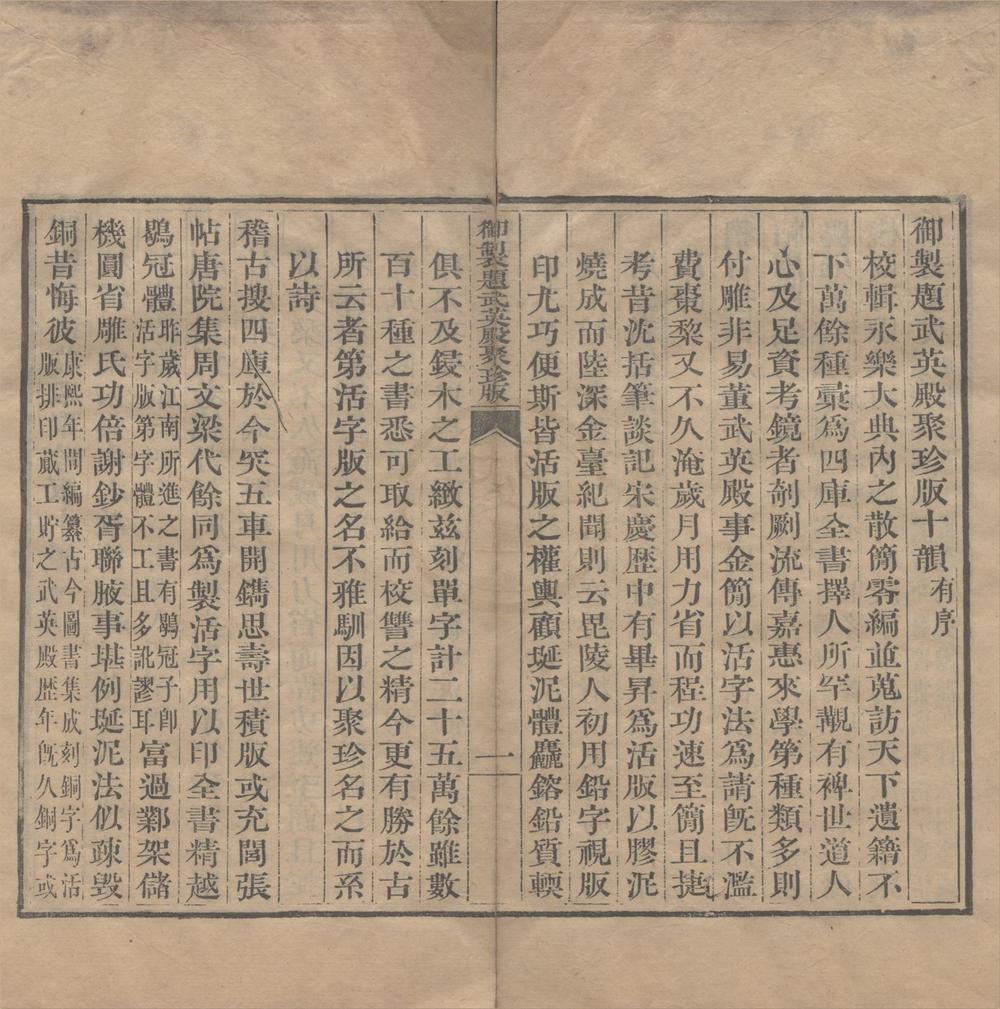 御製題武英殿聚珍版十韻有序
校輯永樂大典內之散簡零編並蒐訪天下遺籍不
下萬餘種彙為四庫全書擇人所罕覯有裨世道人
心及足資考鏡者剞劂流傳嘉惠來學第種類多則
付雕非易董武英殿事金簡以活字法為請既不濫
費棗棃又不久淹歲月用力省而程功速至簡且捷
考昔沈括筆談記宋慶歷中有畢昇為活版以膠泥
燒成而陸深金臺紀聞則云毘陵人初用鉛字視版
印尤巧便斯皆活版之權輿顧埏泥體麤鎔鉛質輭
御製題武英殿聚珍版
一
俱不及鋟木之工緻茲刻單字計二十五萬餘雖數
百十種之書悉可取給而校讐之精今更有勝於古
所云者第活字版之名不雅馴因以聚珍名之而系
以詩
稽古搜四庫於今突五車開鐫思壽世積版或充閭張
帖唐院集周文梁代餘同為製活字用以印全書精越
鶡冠體昨歲江南所進之書有鶡冠子即
活字版第字體不工且多訛謬耳富過鄴架儲
機圓省雕氏功倍謝鈔胥聯腋事堪例埏泥法似疎毀
銅昔悔彼康熙年間編纂古今圖書集成刻銅字為活
版排印蕆工貯之武英殿歷年既久銅字或